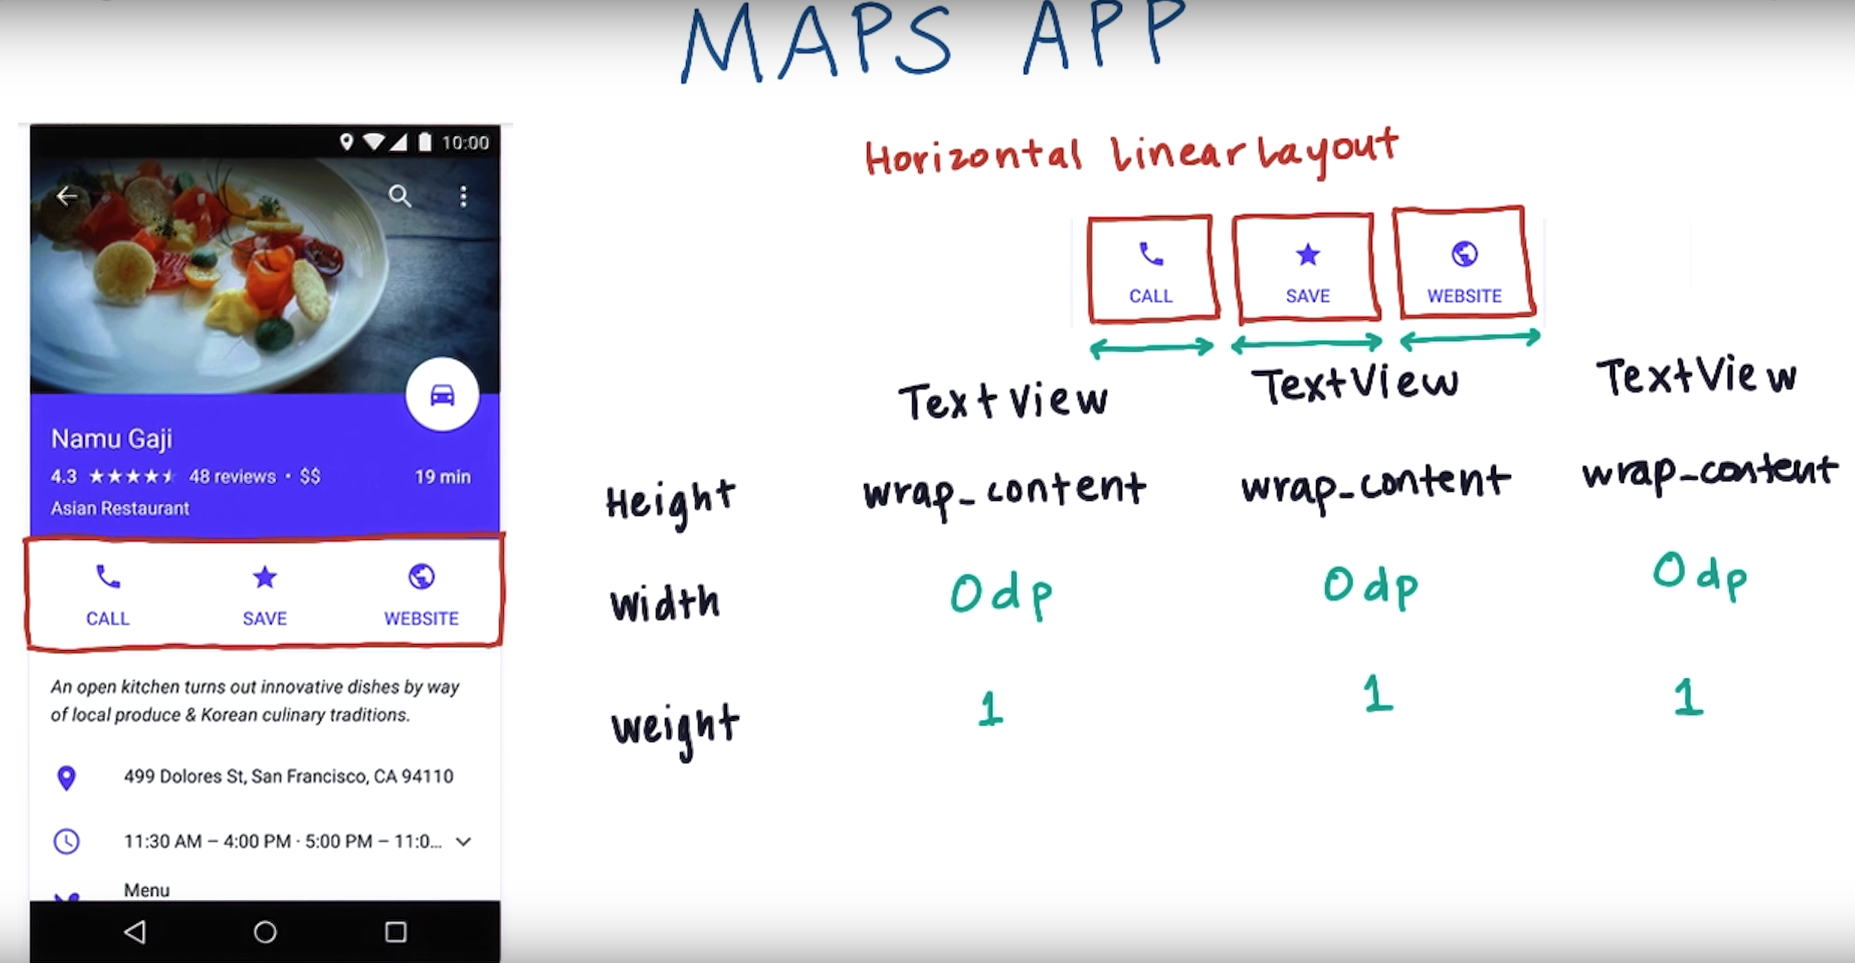 MAPS APP
10:00
Namu Gaji
4.3 48 reviews · $$ 19 min
Asian Restaurant
CALL SAVE WEBSITE
An open kitchen turns out innovative dishes by way
of local produce & Korean culinary traditions.
499 Dolores St, San Francisco, CA 94110
11:30 AM – 4:00 PM · 5:00 PM – 11:0...
Menu
Horizontal LinearLayout
CALL SAVE WEBSITE
TextView TextView TextView
Height wrap_content wrap_content wrap_content
Width 0dp 0dp 0dp
Weight 1 1 1